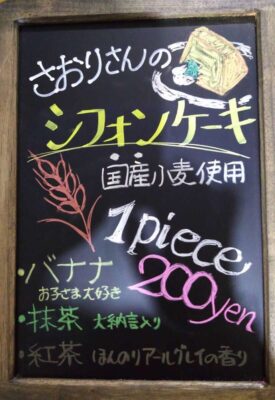 さおりさんの
シフォンケーキ
国産小麦使用
1piece
200yen
・バナナ
お子さま大好き
・抹茶 大納言入り
・紅茶 ほんのりアールグレイの香り